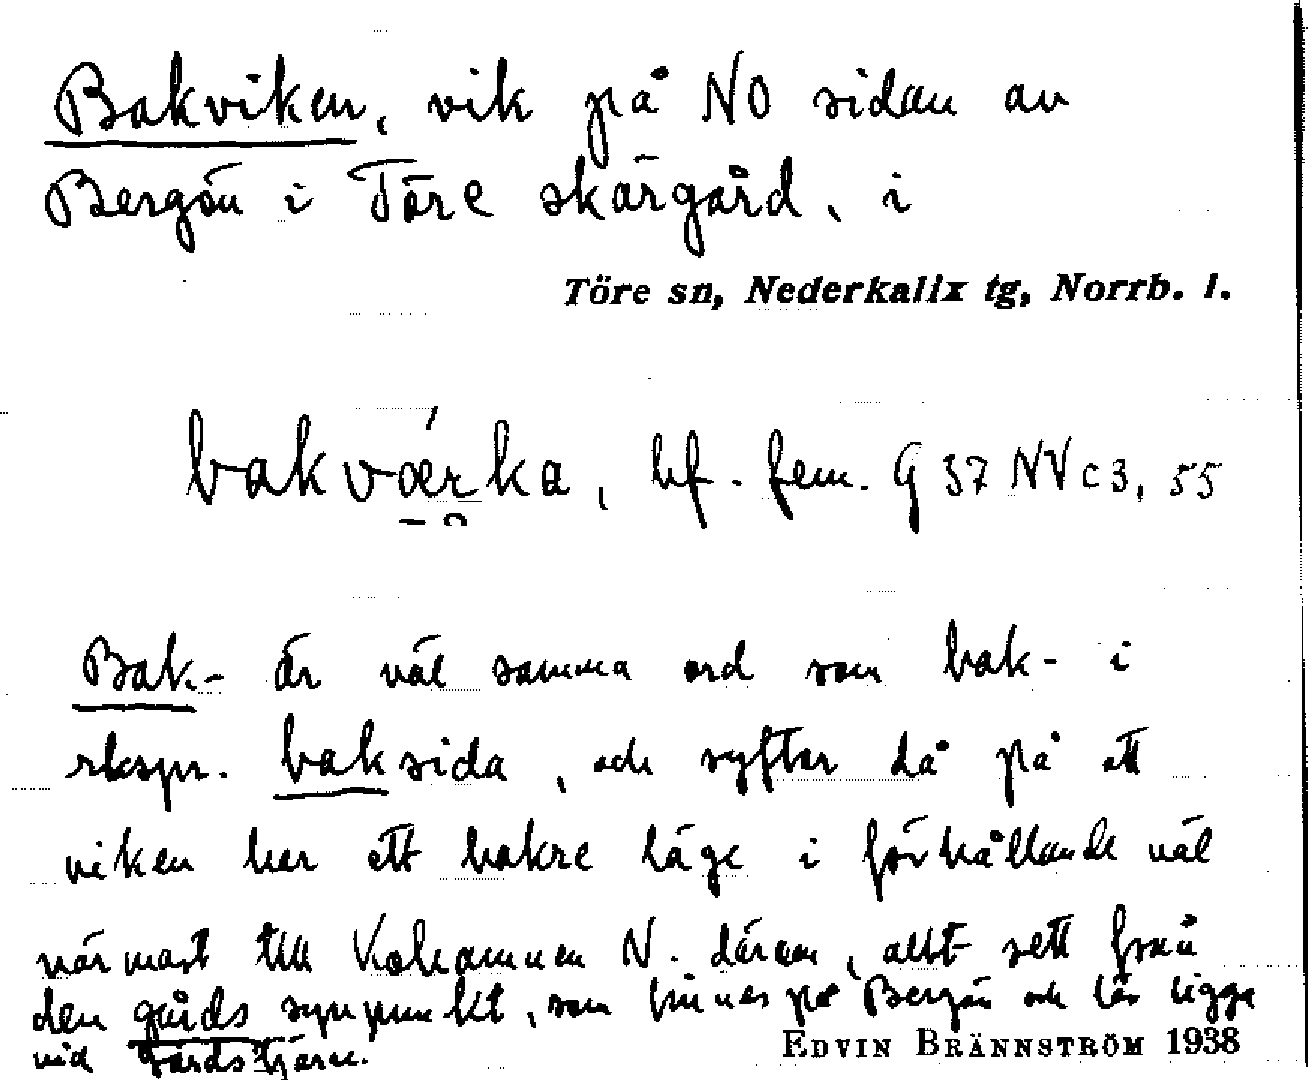 Bakviken, vik på NO sidan av
Bergön i Töre skärgård, i
Töre sn, Nederkalix tg, Norrb. l.
bakværka, bf. fem. G 37 NV c 3, 55
Bak- är väl samma ord som bak- i
rkspr. baksida, och syftar då på att
viken har ett bakre läge i förhållande väl
närmast till Kohamnen N. därom, allt sett från
den gårds synpunkt, som finnes på Bergön och lär ligga
vid Gårdstjärn.
EDVIN BRÄNNSTRÖM 1938